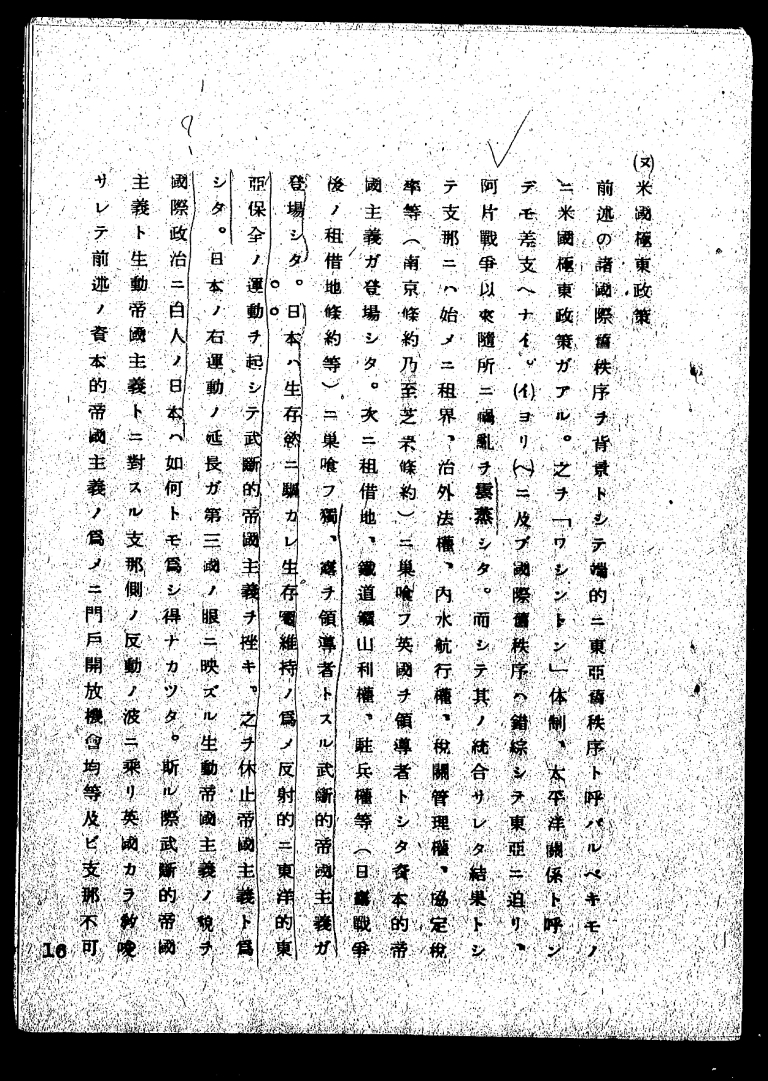 (ヌ)米國極東政策
前述の諸國際舊秩序ヲ背景トシテ端的ニ東亞舊秩序ト呼バルベキモノ
ニ米國極東政策ガアル。之ヲ「ワシントン」体制、太平洋關係ト呼ン
デモ差支ヘナイ。(イ)ヨリ(ヘ)ニ及ブ國際舊秩序ハ錯綜シテ東亞ニ迫リ、
阿片戰爭以來隨所ニ禍亂ヲ雲蒸シタ。而シテ其ノ統合サレタ結果トシ
テ支那ニハ始メニ租界、治外法權、內水航行權、稅關管理權、協定稅
率等(南京條約乃至芝罘條約)ニ巢喰フ英國ヲ領導者トシタ資本的帝
國主義ガ登場シタ。次ニ租借地、鐵道鑛山利權、駐兵權等(日露戰爭
後ノ租借地條約等)ニ巢喰フ獨、露ヲ領導者トスル武斷的帝國主義ガ
登場シタ。日本ハ生存慾ニ驅カレ生存圈維持ノ爲メ反射的ニ東洋的東
亞保全ノ運動ヲ起シテ武斷的帝國主義ヲ挫キ。之ヲ休止帝國主義ト爲
シタ。日本ノ右運動ノ延長ガ第三國ノ眼ニ映ズル生動帝國主義ノ貌ヲ
國際政治ニ白人ノ日本ハ如何トモ爲シ得ナカツタ。斯ル際武斷的帝國
主義ト生動帝國主義トニ對スル支那側ノ反動ノ波ニ乘リ英國カラ敎唆
サレテ前述ノ資本的帝國主義ノ爲メニ門戶開放機會均等及ビ支那不可
16